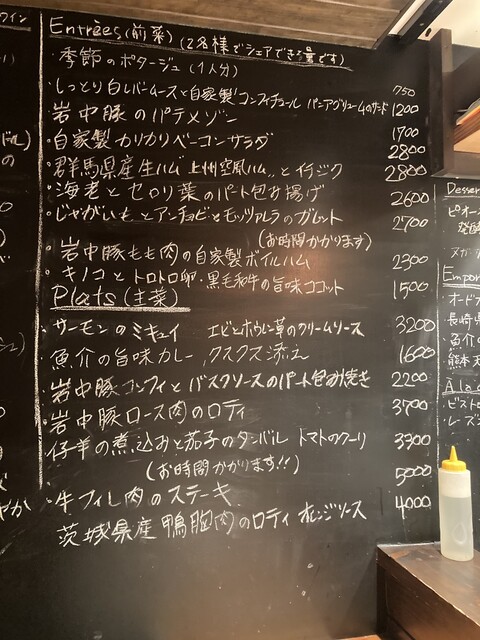 ワイン
Entrées (前菜) (2名様でシェアできる量です)
・季節のポタージュ (1人分) 750
・しっとり白レバームースと自家製コンフィチュール 1200
岩中豚のパテメゾン 1700
・自家製カリカリベーコンサラダ 2800
・群馬県産生ハム 上州空風ハム〟とイチジク 2800
・海老とセロリ葉のパート包み揚げ 2600
・じゃがいもとアンチョビとモッツァレラのガレット 2700
(お時間かかります)
・岩中豚もも肉の自家製ボイルハム 2300
・キノコとトロトロ卵・黒毛和牛の旨味ココット 1500
Plats (主菜)
・サーモンのミキュイ エビとホウレン草のクリームソース 3200
魚介の旨味カレー クスクス添え 1600
岩中豚コンフィとバスクソースのパート包み焼き 2200
・岩中豚ロース肉のロティ 3700
・仔羊の煮込みと茄子のタンバル トマトのクーリ 3300
(お時間かかります!!)
・牛フィレ肉のステーキ 5000
茨城県産 鴨胸肉のロティ オレンジソース 4000
Desser
Empor
オードブ
長崎県
・魚介の
熊本天
À la c
・ビストロ
・レーズ